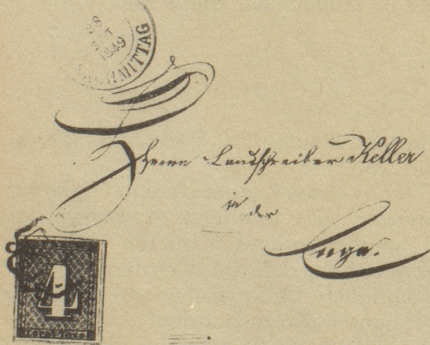 1849
NACHMITTAG
Herrn Landschreiber Keller
in
der
Enge.
4